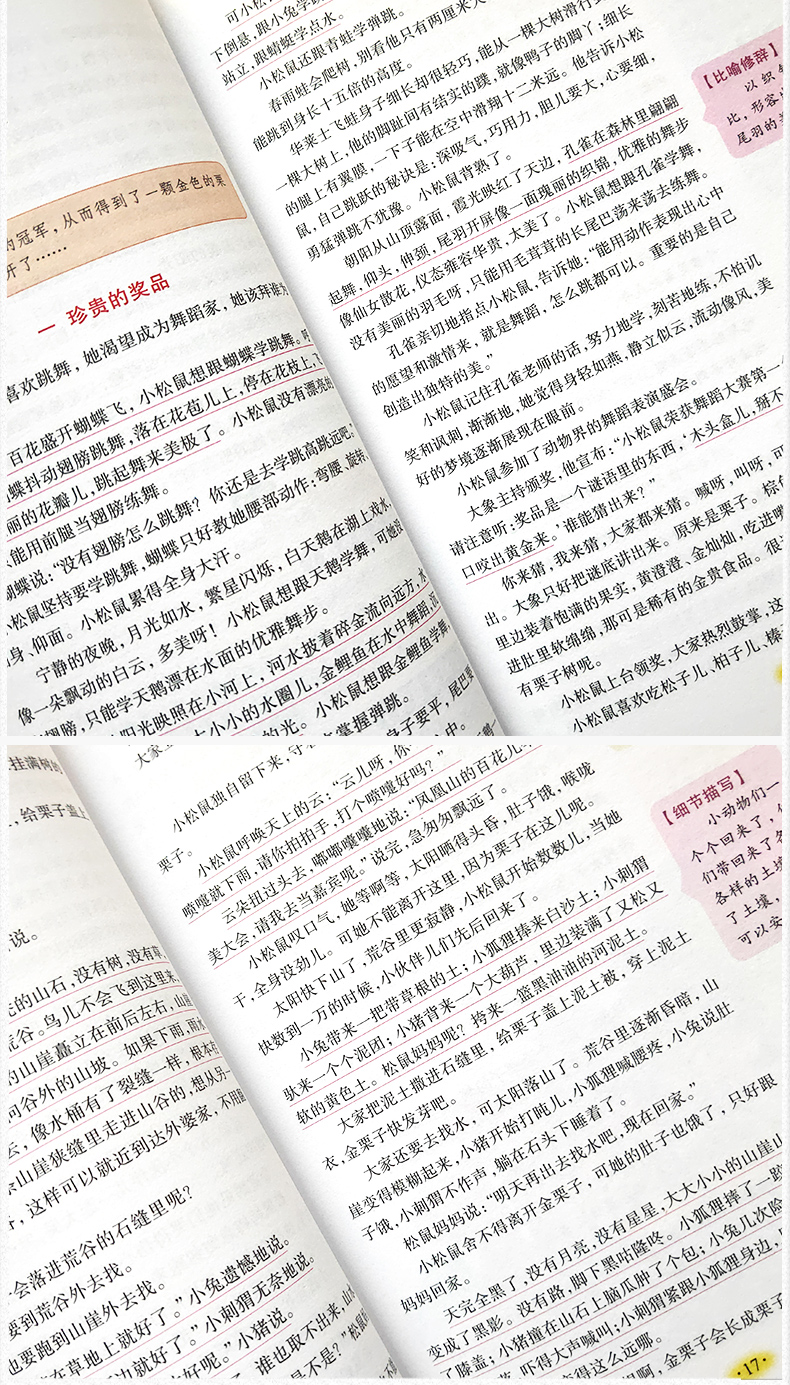 的冠军，从而得到了一颗金色的栗
开了……
一 珍贵的奖品
喜欢跳舞，她渴望成为舞蹈家，她该拜谁为
百花盛开蝴蝶飞，小松鼠想跟蝴蝶学跳舞。
蝶抖动翅膀跳舞，落在花苞儿上，停在花枝上，
丽的花瓣儿，跳起舞来美极了。小松鼠没有漂亮的
能用前腿当翅膀练舞。
蝴蝶说：“没有翅膀怎么跳舞？你还是去学跳高跳远吧，
小松鼠坚持要学跳舞，蝴蝶只好教她腰部动作：弯腰、旋转
身、仰面。小松鼠累得全身大汗。
宁静的夜晚，月光如水，繁星闪烁，白天鹅在湖上戏水，
像一朵飘动的白云，多美呀！小松鼠想跟天鹅学舞，可她没
翅膀，只能学天鹅漂在水面的优雅舞步。
阳光映照在小河上，河水披着碎金流向远方，
大小小的水圈儿，金鲤鱼在水中舞蹈，
的光。小松鼠想跟金鲤鱼学舞
掌握弹跳。
身子要平，尾巴要
可小松
下倒悬，跟小兔学跳
站立，跟蜻蜓学点水。
小松鼠还跟青蛙学弹跳。
春雨蛙会爬树，别看他只有两厘米大
能跳到身长十五倍的高度。
华莱士飞蛙身子细长却很轻巧，能从一棵大树滑行到
一棵大树上，他的脚趾间有结实的蹼，就像鸭子的脚丫；细长
的腿上有翼膜，一下子能在空中滑翔十二米远。他告诉小松
鼠，自己跳跃的秘诀是：深吸气，巧用力，胆儿要大，心要细，
勇猛弹跳不犹豫。小松鼠背熟了。
朝阳从山顶露面，霞光映红了天边，孔雀在森林里翩翩
起舞，仰头，伸颈，尾羽开屏像一面瑰丽的织锦，优雅的舞步
像仙女散花，仪态雍容华贵，太美了。小松鼠想跟孔雀学舞，
没有美丽的羽毛呀，只能用毛茸茸的长尾巴荡来荡去练舞。
孔雀亲切地指点小松鼠，告诉她：“能用动作表现出心中
的愿望和激情来，就是舞蹈，怎么跳都可以。重要的是自己
创造出独特的美。”
小松鼠记住孔雀老师的话，努力地学，刻苦地练，不怕讥
笑和讽刺，渐渐地，她觉得身轻如燕，静立似云，流动像风，美
好的梦境逐渐展现在眼前。
小松鼠参加了动物界的舞蹈表演盛会。
大象主持颁奖，他宣布：“小松鼠荣获舞蹈大赛第一
请注意听：奖品是一个谜语里的东西，‘木头盒儿，掰不
口咬出黄金来。’谁能猜出来？”
你来猜，我来猜，大家都来猜。喊呀，叫呀，可
出。大象只好把谜底讲出来。原来是栗子。棕色
里边装着饱满的果实，黄澄澄、金灿灿，吃进嘴
进肚里软绵绵，那可是稀有的金贵食品。很
有栗子树呢。
小松鼠上台领奖，大家热烈鼓掌，这
小松鼠喜欢吃松子儿、柏子儿、榛子
【比喻修辞】
以织锦
比，形容出
尾羽的美
挂满树的
，给栗子盖
说。
的山石，没有树，没有草，
荒谷。鸟儿不会飞到这里来，
的山崖矗立在前后左右，山崖
向谷外的山坡。如果下雨，雨水
去，像水桶有了裂缝一样，根本存
山崖狭缝里走进山谷的，想从另一
，这样可以就近到达外婆家，不用翻
会落进荒谷的石缝里呢？
要到荒谷外去找。
也要跑到山崖外去找。
在草地上就好了。”小兔遗憾地说。
边就好了。”小刺猬无奈地说。
好呢。”小猪说。
谁也取不出来，
是不是？”
小松鼠独自留下来，守着
栗子。
小松鼠呼唤天上的云：“云儿呀，你
喷嚏就下雨，请你拍拍手，打个喷嚏好吗？”
云朵扭过头去，嘟嘟囔囔地说：“凤凰山的百花儿
美大会，请我去当嘉宾呢。”说完，急匆匆飘远了。
小松鼠叹口气，她等啊等，太阳晒得头昏，肚子饿，喉咙
干，全身没劲儿。可她不能离开这里，因为栗子在这儿呢。
太阳快下山了，荒谷里更寂静，小松鼠开始数数儿，当她
快数到一万的时候，小伙伴儿们先后回来了。
小兔带来一把带草根的土；小狐狸捧来白沙土；小刺猬
驮来一个个泥团；小猪背来一个大葫芦，里边装满了又松又
软的黄色土。松鼠妈妈呢？挎来一篮黑油油的河泥土。
大家把泥土撒进石缝里，给栗子盖上泥土被，穿上泥土
衣，金栗子快发芽吧。
大家还要去找水，可太阳落山了。荒谷里逐渐昏暗，山
崖变得模糊起来，小猪开始打盹儿，小狐狸喊腰疼，小兔说肚
子饿，小刺猬不作声，躺在石头下睡着了。
松鼠妈妈说：“明天再出去找水吧，现在回家。”
小松鼠舍不得离开金栗子，可她的肚子也饿了，只好跟
妈妈回家。
天完全黑了，没有月亮，没有星星，大大小小的山崖山
变成了黑影。没有路，脚下黑咕隆咚。小狐狸摔了一跤
了膝盖；小猪撞在山石上脑瓜肿了个包；小兔几次险
吓得大声喊叫；小刺猬紧跟小狐狸身边，
得这么远哪。
啊，金栗子会长成栗子
【细节描写】
小动物们一
个个回来了，他
们带回来了各
各样的土壤
了土壤，
可以安
·17·